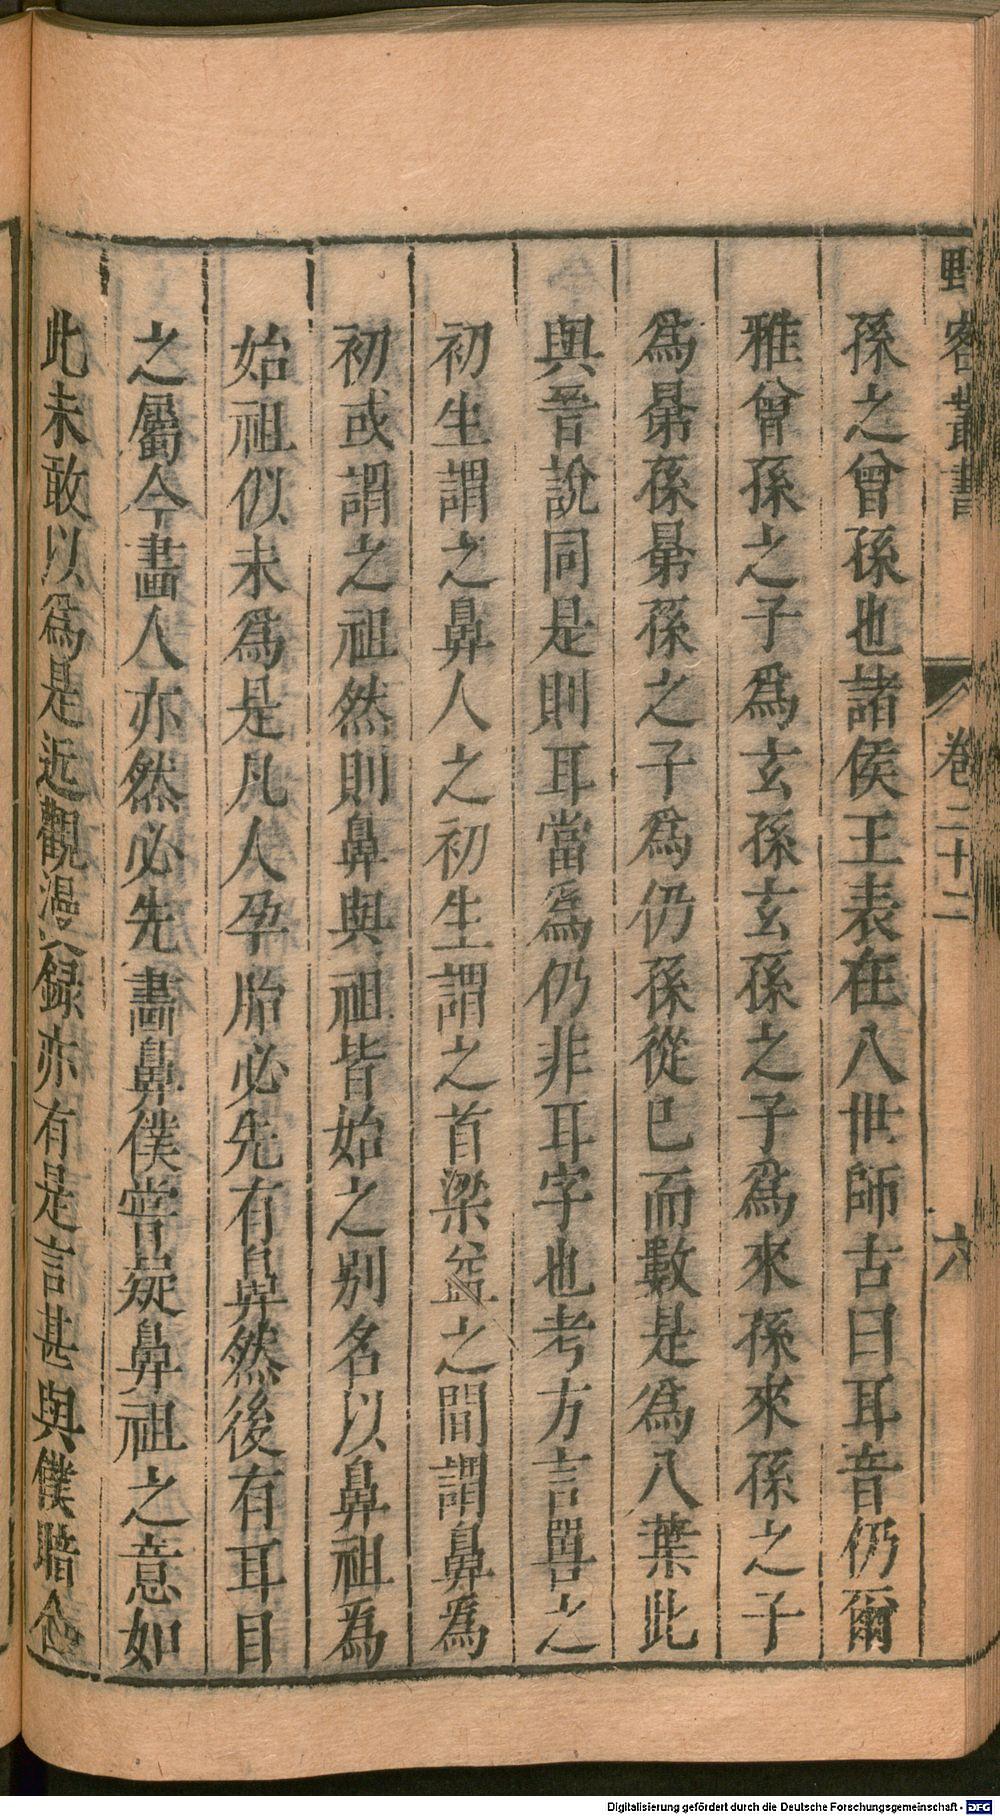 野客叢書 卷二十二 六
孫之曾孫也諸侯王表在八世師古曰耳音仍爾
雅曾孫之子爲玄孫玄孫之子爲來孫來孫之子
爲晜孫晜孫之子爲仍孫從己而數是爲八葉此
與晉說同是則耳當爲仍非耳字也考方言嘼之
初生謂之鼻人之初生謂之首梁益之間謂鼻爲
初或謂之祖然則鼻與祖皆始之別名以鼻祖為
始祖似未爲是凡人孕胎必先有鼻然後有耳目
之屬今畵人亦然必先畵鼻僕嘗疑鼻祖之意如
此未敢以爲是近觀漫録亦有是言甚與僕暗合
Digitalisierung gefördert durch die Deutsche Forschungsgemeinschaft - DFG